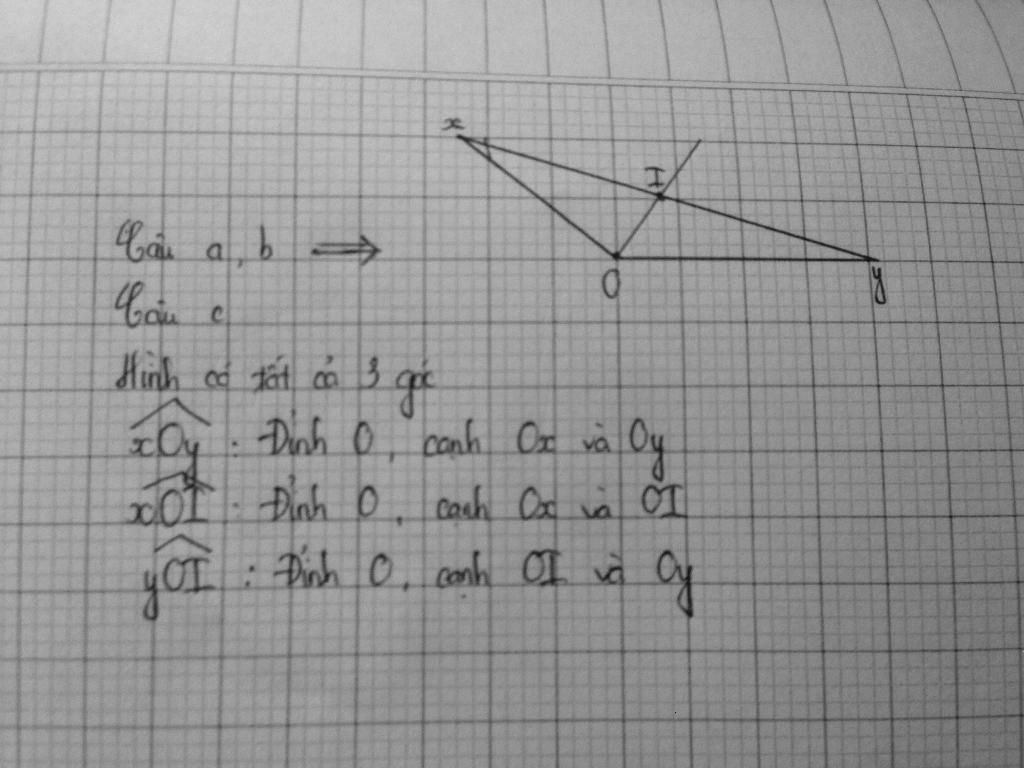 x
I
O
y
Câu a, b ⟹
Câu c
Hình có tất cả 3 góc
xOy : Đỉnh O, cạnh Ox và Oy
xOI : Đỉnh O, cạnh Ox và OI
yOI : Đỉnh O, cạnh OI và Oy